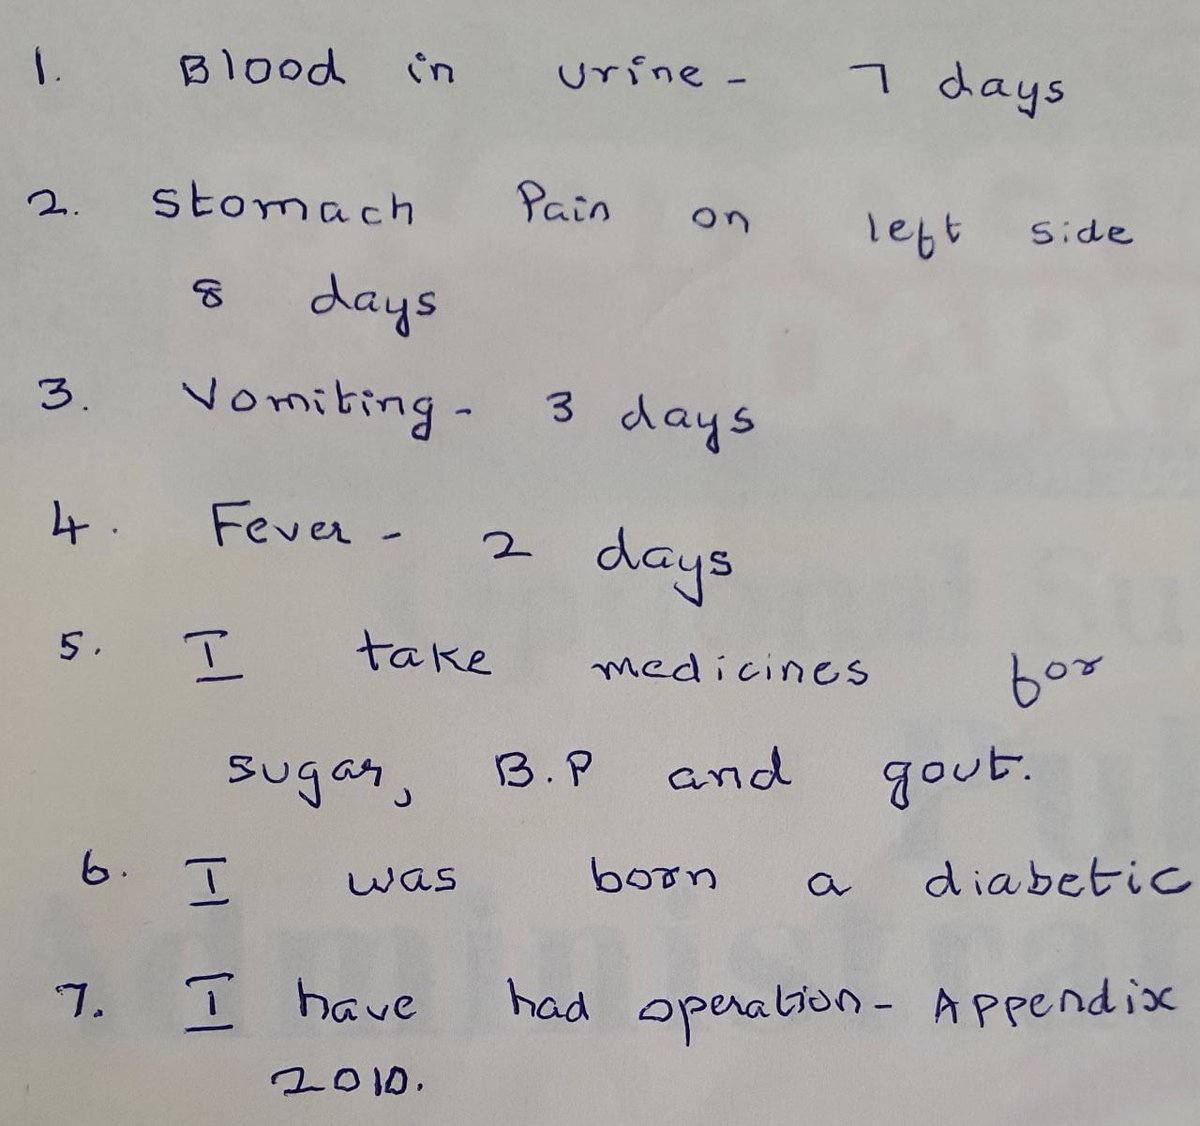 1. Blood in urine - 7 days
2. Stomach Pain on left side
8 days
3. Vomiting - 3 days
4. Fever - 2 days
5. I take medicines for
sugar, B.P and gout.
6. I was born a diabetic
7. I have had operation - Appendix
2010.